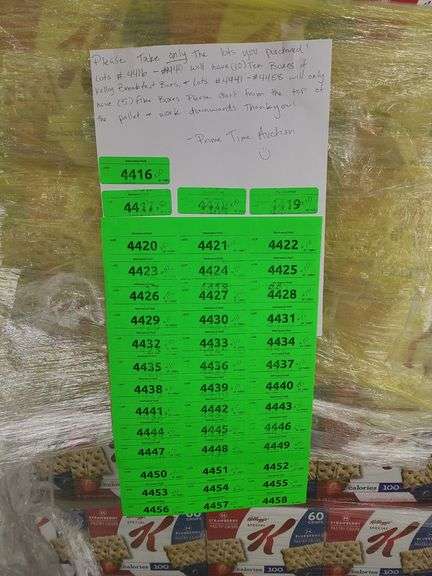 Please Take only The lots you purchased!
Lots #4416 - #4440 will have (10) Ten Boxes of
Kellog Breakfast Bars, + Lots #4441 - #4458 will only
have (5) Five Boxes. Please start from the top of
the pallet + work downwards Thank you!
- Prime Time Auction
4416
4417 4419
4420 4421 4422
4423 4424 4425
4426 4427 4428
4429 4430 4431
4432 4433 4434
4435 4436 4437
4438 4439 4440
4441 4442 4443
4444 4445 4446
4447 4448 4449
4450 4451 4452
4453 4454 4455
4456 4457 4458
calories 100
calories 100
60
Kellogg's
K
STRAWBERRY
60
K
STRAWBERRY
Kellogg's
K
calories 100
calories 100